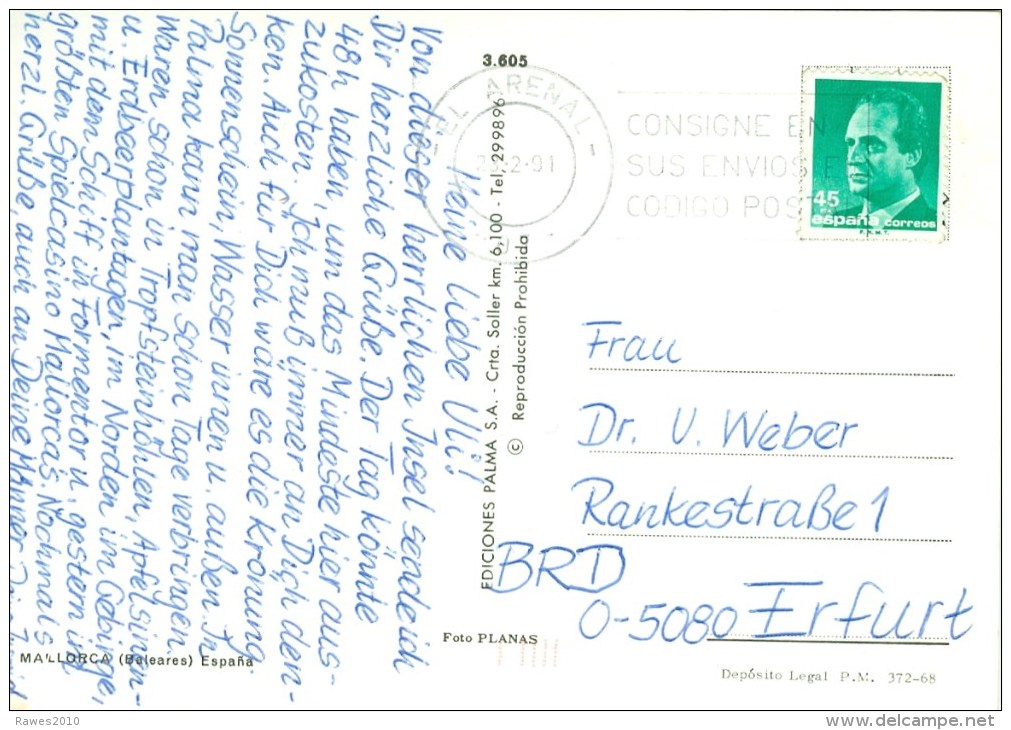 Meine liebe Uli!
Von dieser herrlichen Insel sende ich
Dir herzliche Grüße. Der Tag könnte
48h haben, um das Mindeste hier aus-
zukosten. Ich muß immer an Dich den-
ken. Auch für Dich wäre es die Krönung.
Sonnenschein, Wasser innen u. außen. In
Palma kann man schon Tage verbringen.
Waren schon in Tropfsteinhöhlen, Apfelsinen-
u. Erdbeerplantagen, im Norden im Gebirge,
mit dem Schiff in Formentor u. gestern im
größten Spielcasino Mallorcas. Nochmals
herzl. Grüße, auch an Deine Männer
MALLORCA (Baleares) España
3.605
EDICIONES PALMA S.A. - Crta. Soller km. 6,100 - Tel. 299896
© Reproducción Prohibida
Foto PLANAS
EL ARENAL
2-91
CONSIGNE EN
SUS ENVIOS E
CODIGO POST
45
españa correos
Frau
Dr. U. Weber
Rankestraße 1
BRD
O-5080 Erfurt
Depósito Legal P.M. 372-68
Rawes2010
www.delcampe.net